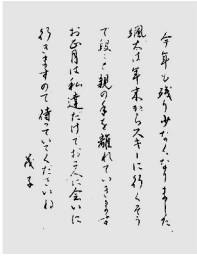 今年も残り少なくなりました
颯太は年末からスキーに行くそう
で段々と親の手を離れていきますね
お正月は私達だけでお二人に会いに
行きますので待っていてくださいね
茂子